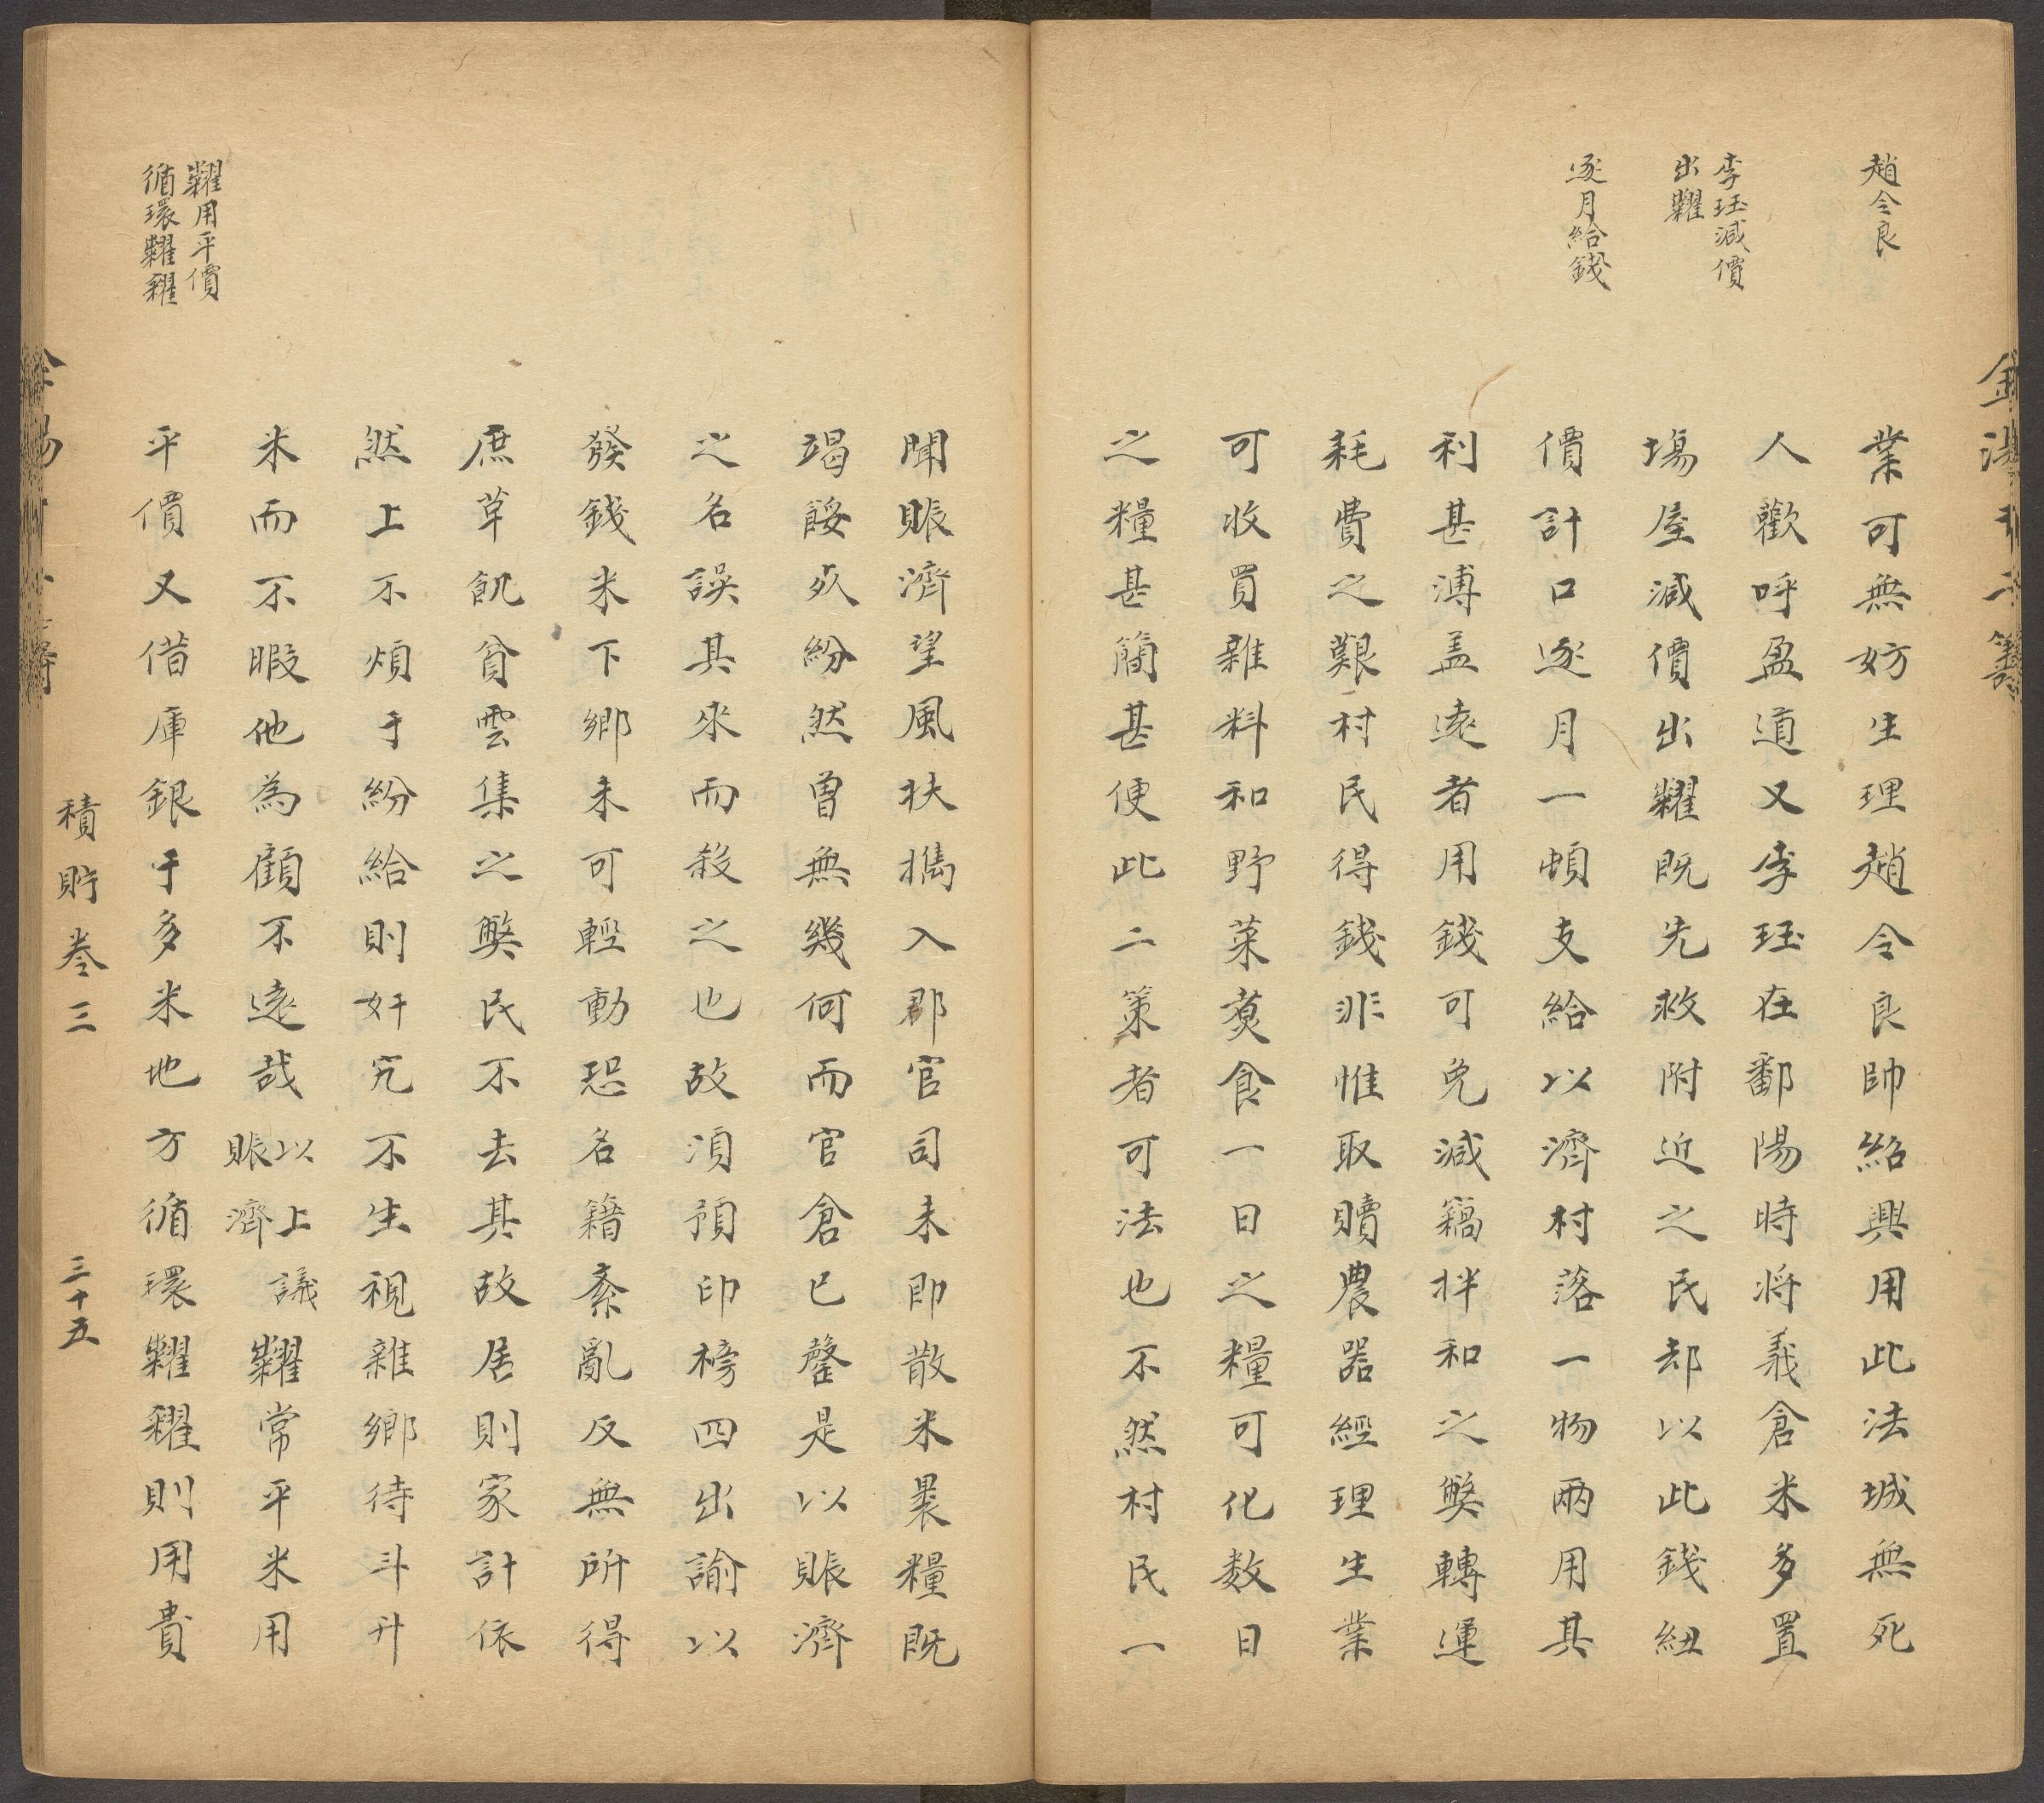 趙令良
李珏減價
出糶
逐月給錢
業可無妨生理趙令良帥紹興用此法城無死
人歡呼盈道又李珏在鄱陽時將義倉米多置
塲屋減價出糶既先救附近之民却以此錢紐
價計口逐月一頓支給以濟村落一物兩用其
利甚溥盖遠者用錢可免減竊拌和之弊轉運
耗費之艱村民得錢非惟取贖農噐經理生業
可收買雜料和野菜煑食一日之糧可化数日
之糧甚簡甚便此二策者可法也不然村民一
聞賑濟望風扶擕入郡官司未即散米裹糧既
竭餒殍紛然曾無幾何而官倉已罄是以賑濟
之名誤其來而殺之也故須預印榜四出諭以
發錢米下鄉未可輕動恐名籍紊亂反無所得
庶草飢貧雲集之弊民不去其故居則家計依
然上不煩于紛給則奸宄不生視離鄉待斗升
米而不暇他為顧不遠哉 以上議賑濟 糶常平米用
平價又借庫銀于多米地方循環糶糴則用貴
糶用平價
循環糶糴
積貯卷三
三十五